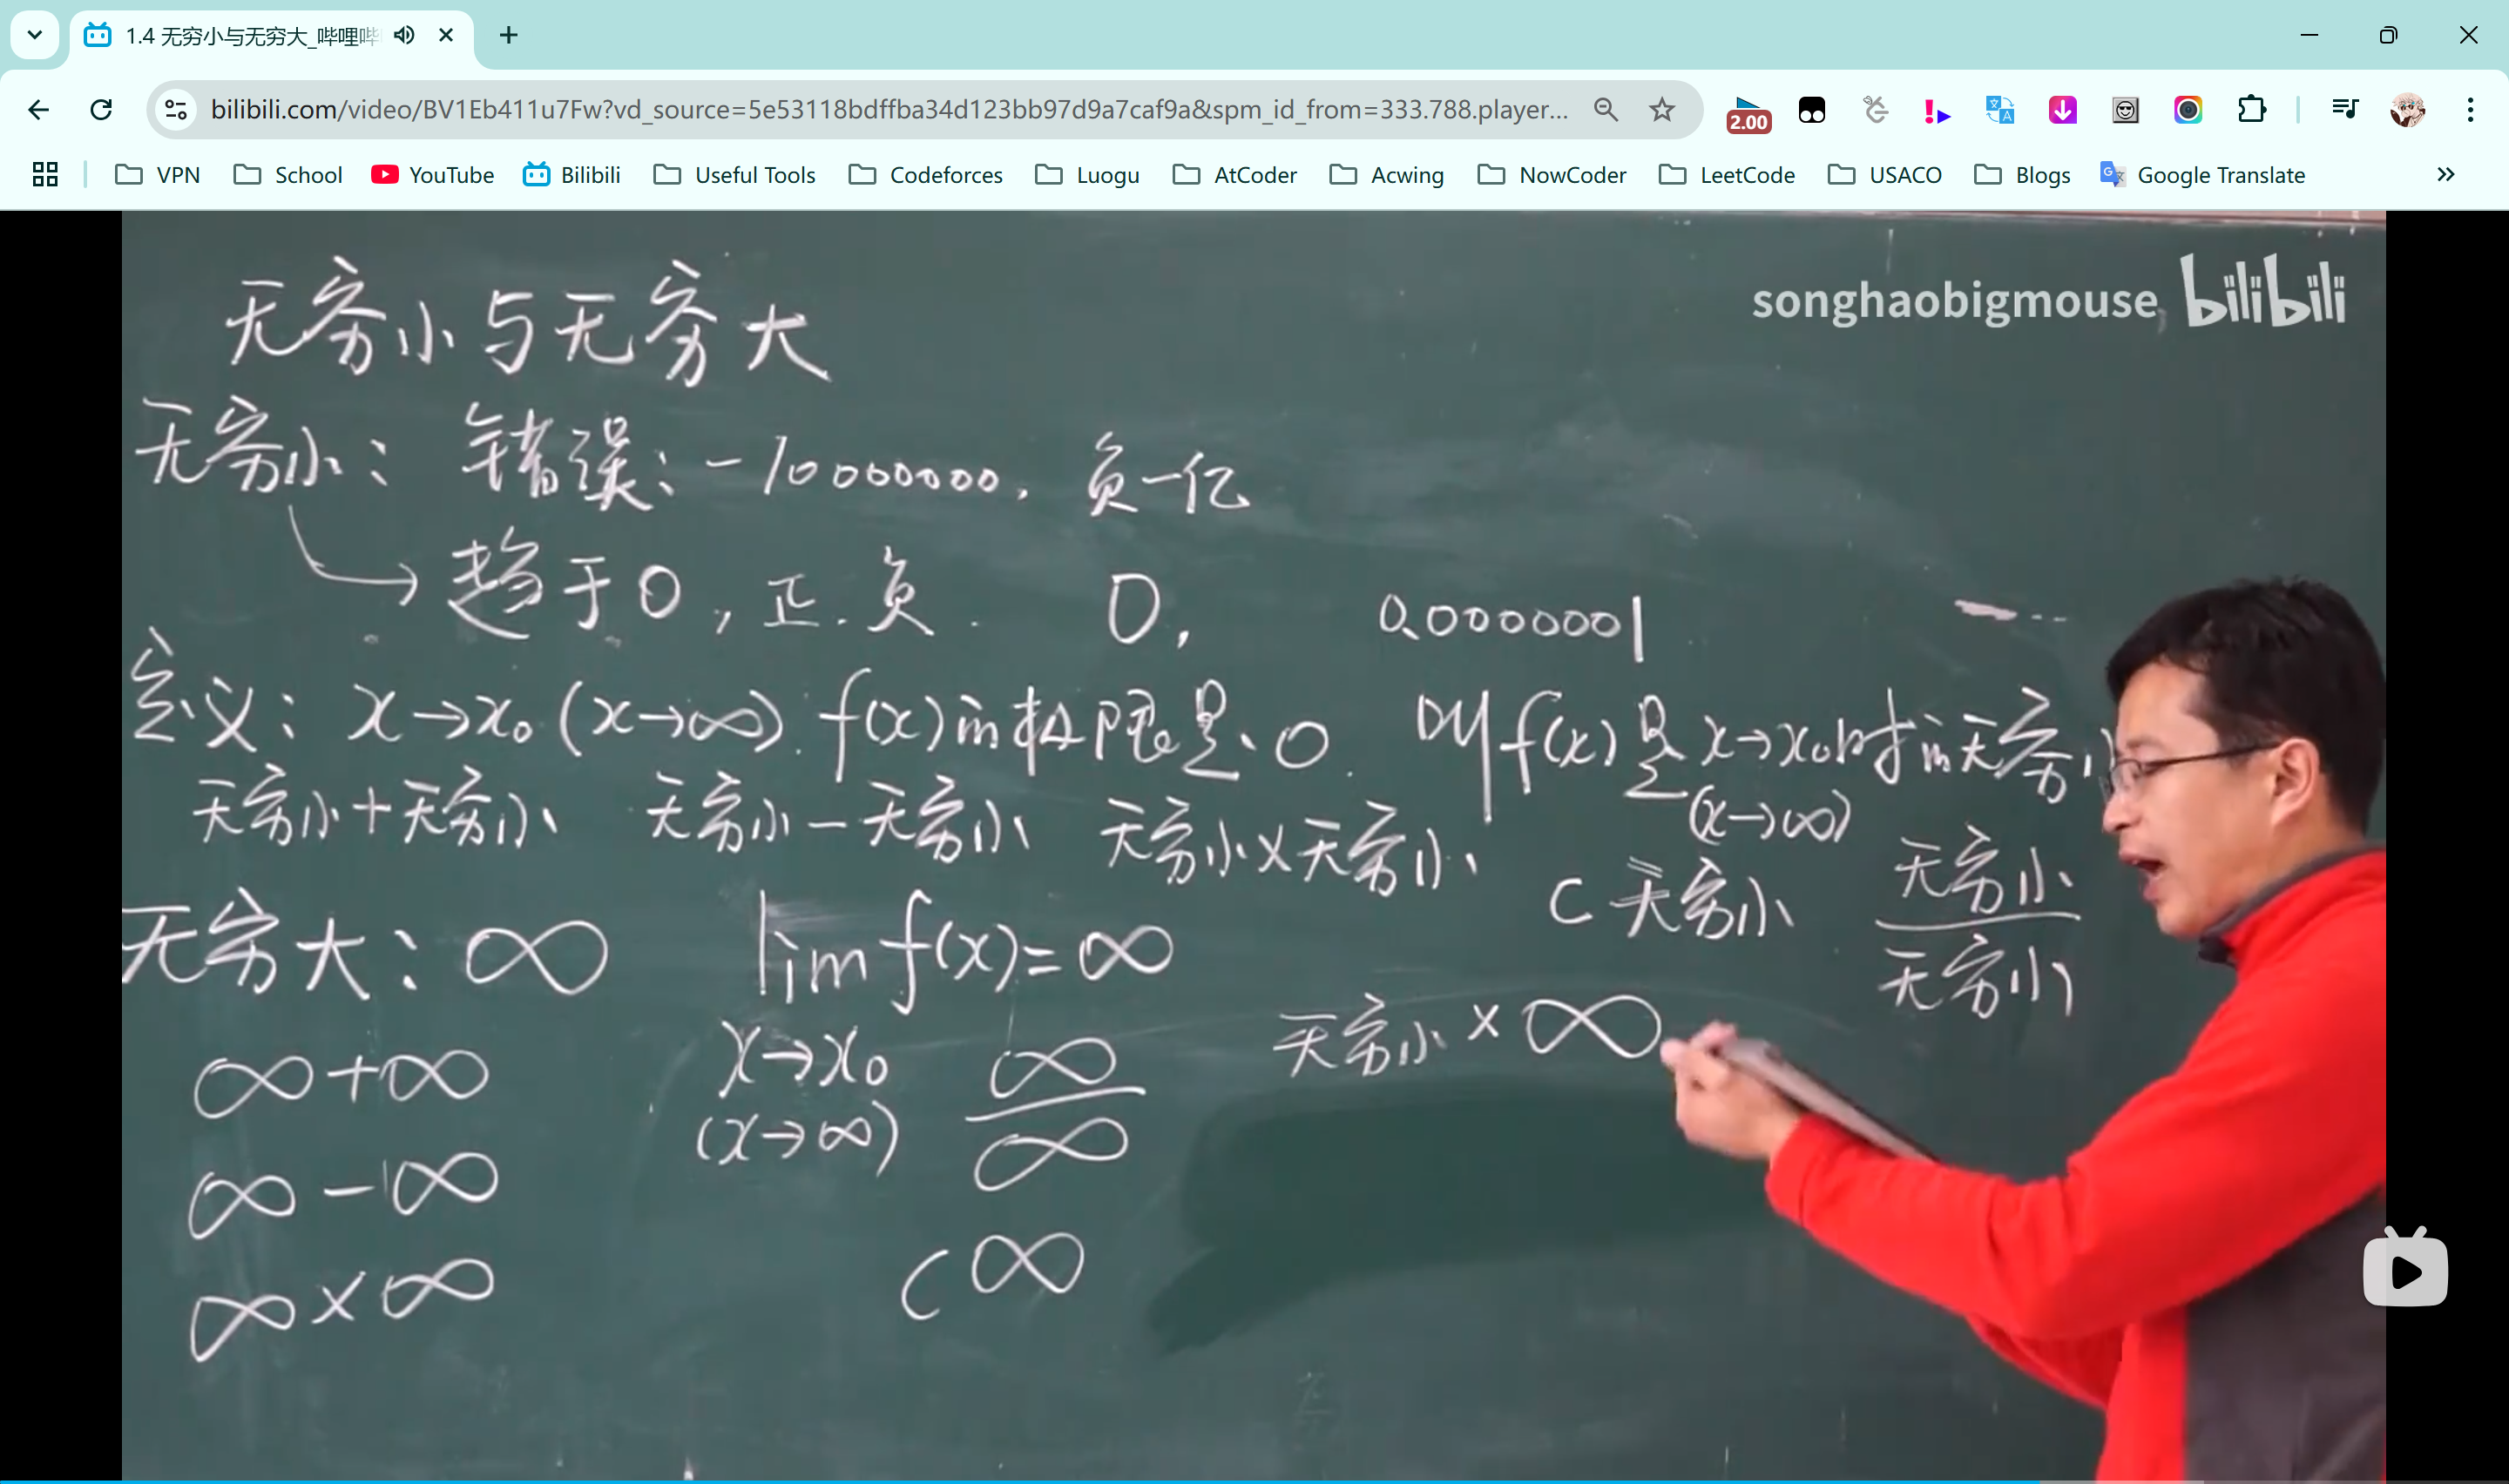 1.4 无穷小与无穷大_哔哩哔
bilibili.com/video/BV1Eb411u7Fw?vd_source=5e53118bdffba34d123bb97d9a7caf9a&spm_id_from=333.788.player...
2.00
VPN School YouTube Bilibili Useful Tools Codeforces Luogu AtCoder Acwing NowCoder LeetCode USACO Blogs Google Translate
songhaobigmouse, bilibili
无穷小与无穷大
无穷小: 错误: -10000000, 负一亿
趋于0, 正. 负. 0, 0.0000001
定义: x→x₀ (x→∞). f(x)的极限是0. 则f(x)是x→x₀时的无穷小
(x→∞)
无穷小+无穷小 无穷小-无穷小 无穷小×无穷小
C无穷小 无穷小/无穷小
无穷大: ∞ lim f(x)=∞
x→x₀
(x→∞)
无穷小×∞
∞+∞ ∞/∞
∞-∞
∞×∞ C∞